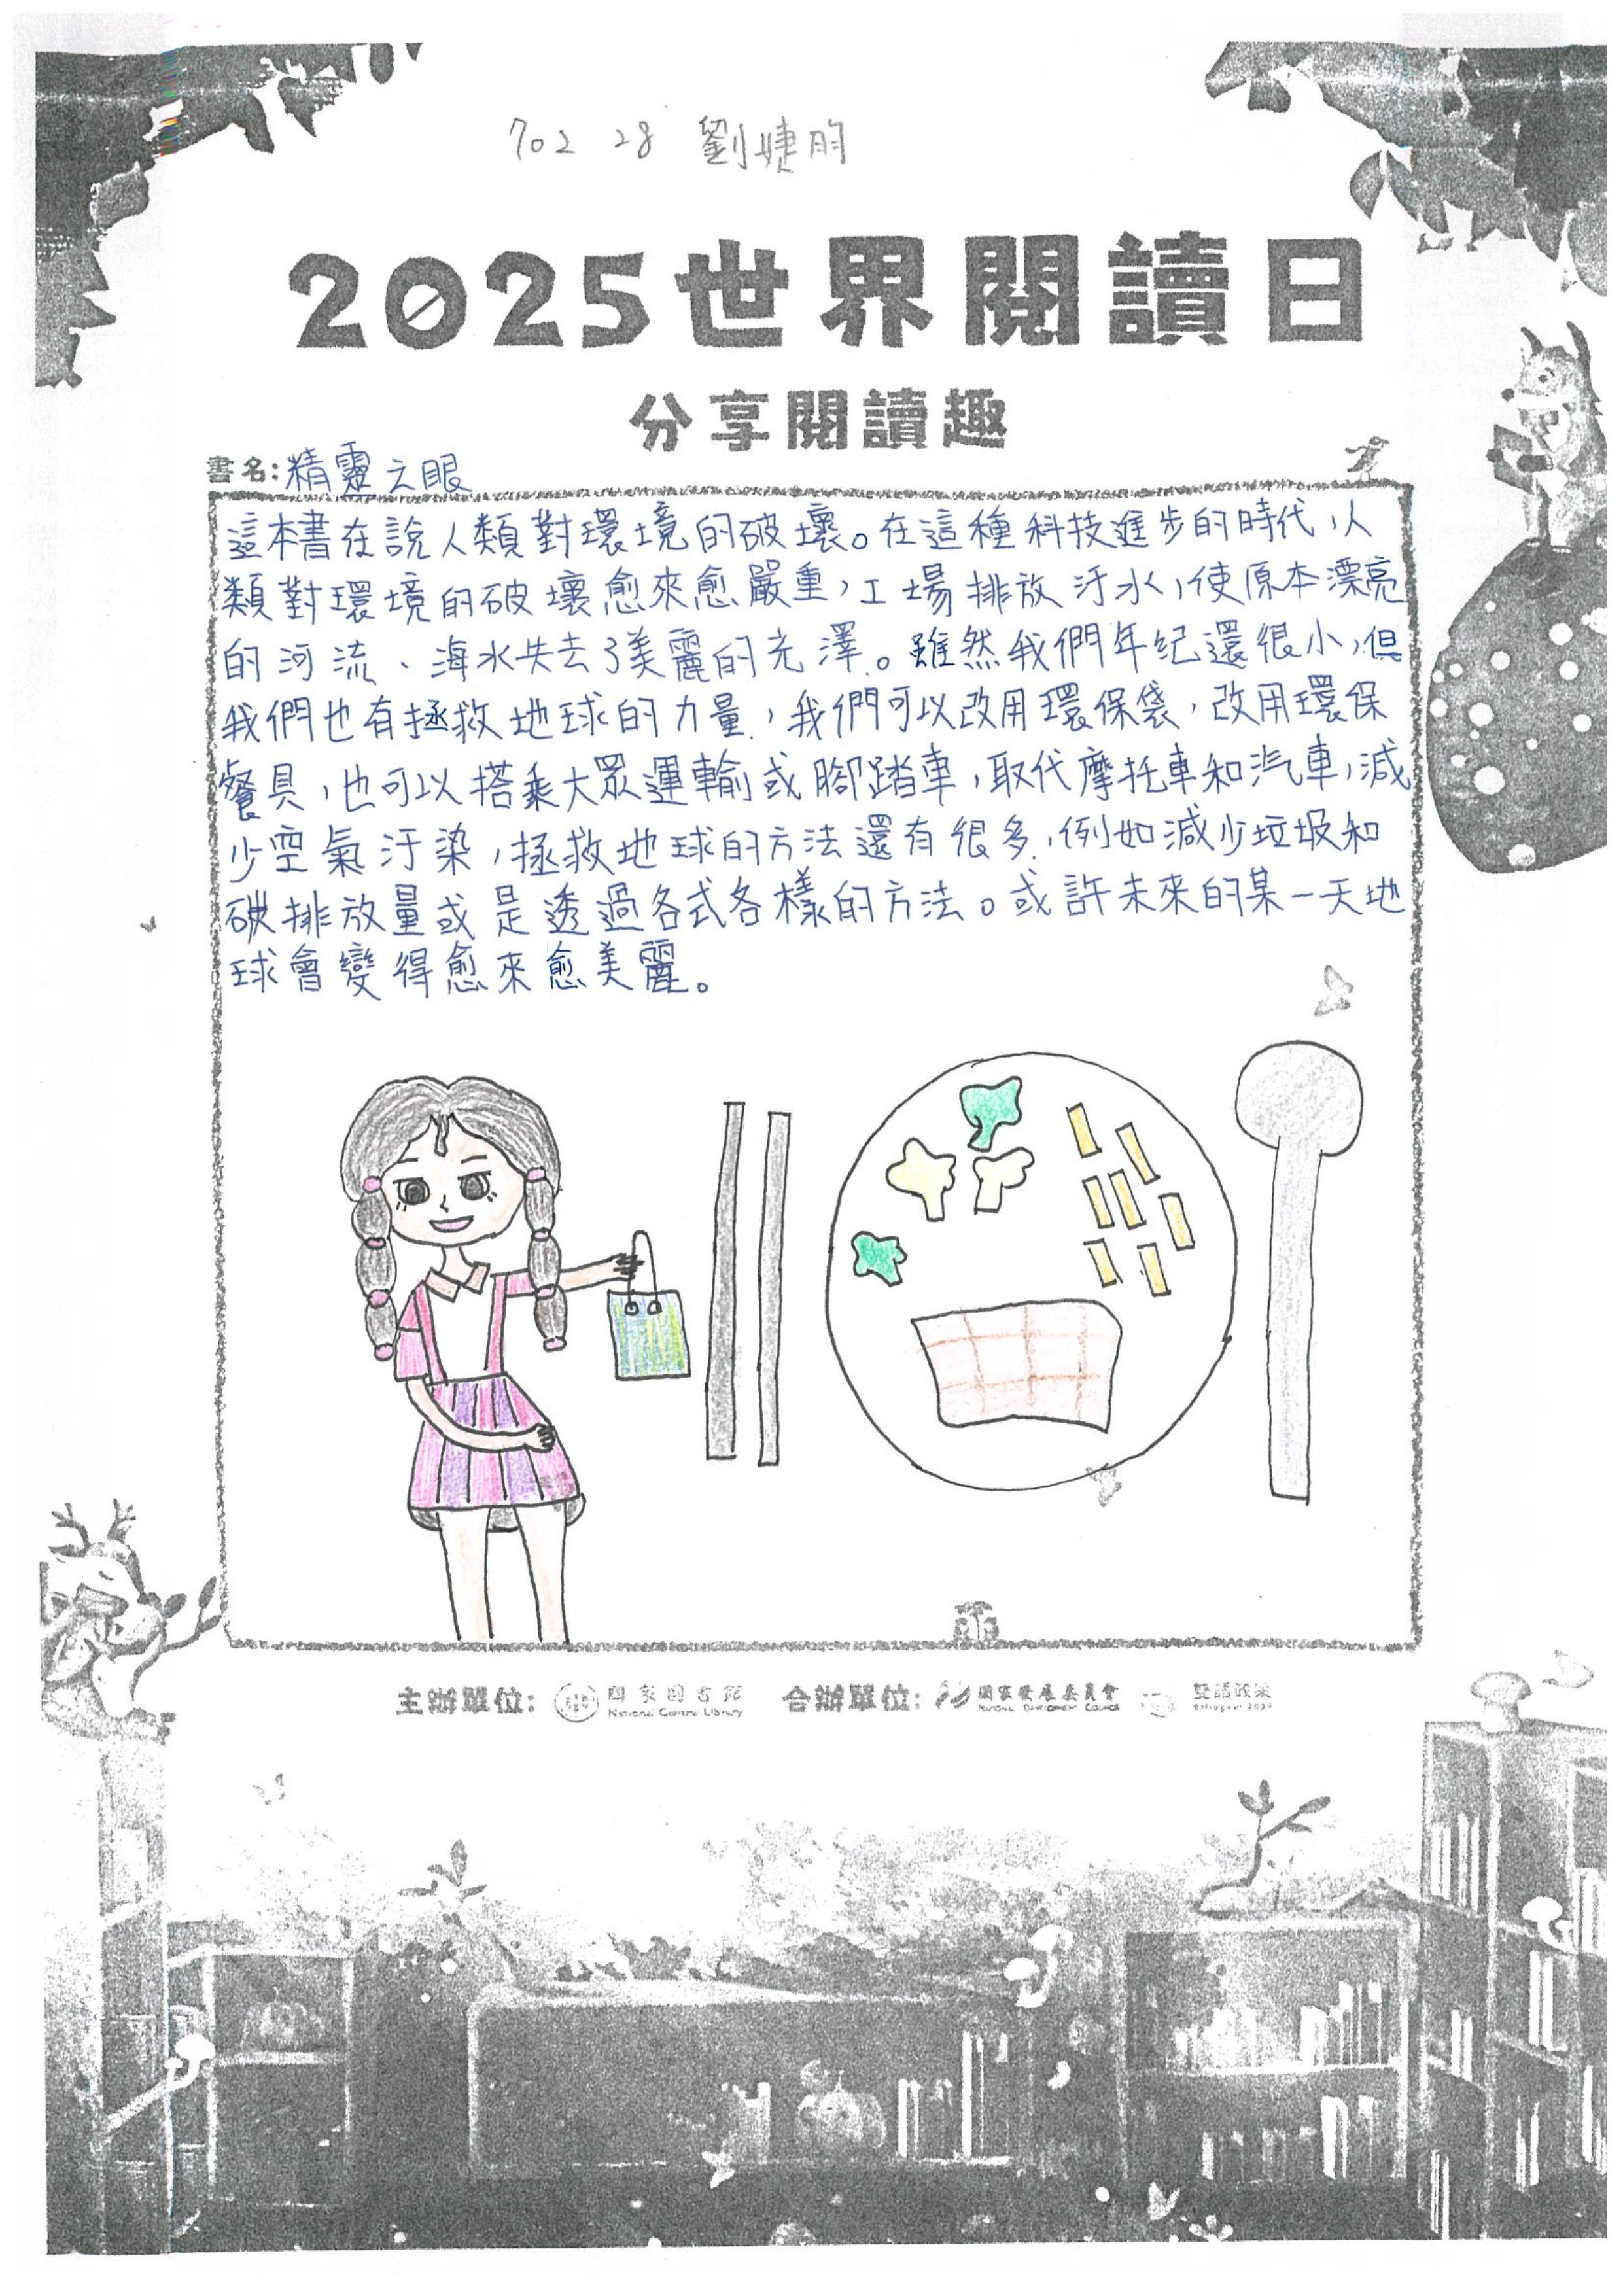 702 28 劉婕明
2025世界閱讀日
分享閱讀趣
書名:精靈之眼
這本書在說人類對環境的破壞。在這種科技進步的時代,人
類對環境的破壞愈來愈嚴重,工場排放汙水,使原本漂亮
的河流、海水失去了美麗的光澤。雖然我們年紀還很小,但
我們也有拯救地球的力量,我們可以改用環保袋,改用環保
餐具,也可以搭乘大眾運輸或腳踏車,取代摩托車和汽車,減
少空氣汙染,拯救地球的方法還有很多,例如減少垃圾和
碳排放量或是透過各式各樣的方法。或許未來的某一天地
球會變得愈來愈美麗。
主辦單位: 國家圖書館 合辦單位: 國家發展委員會 雙語政策
National Central Library National Development Council Bilingual 2030